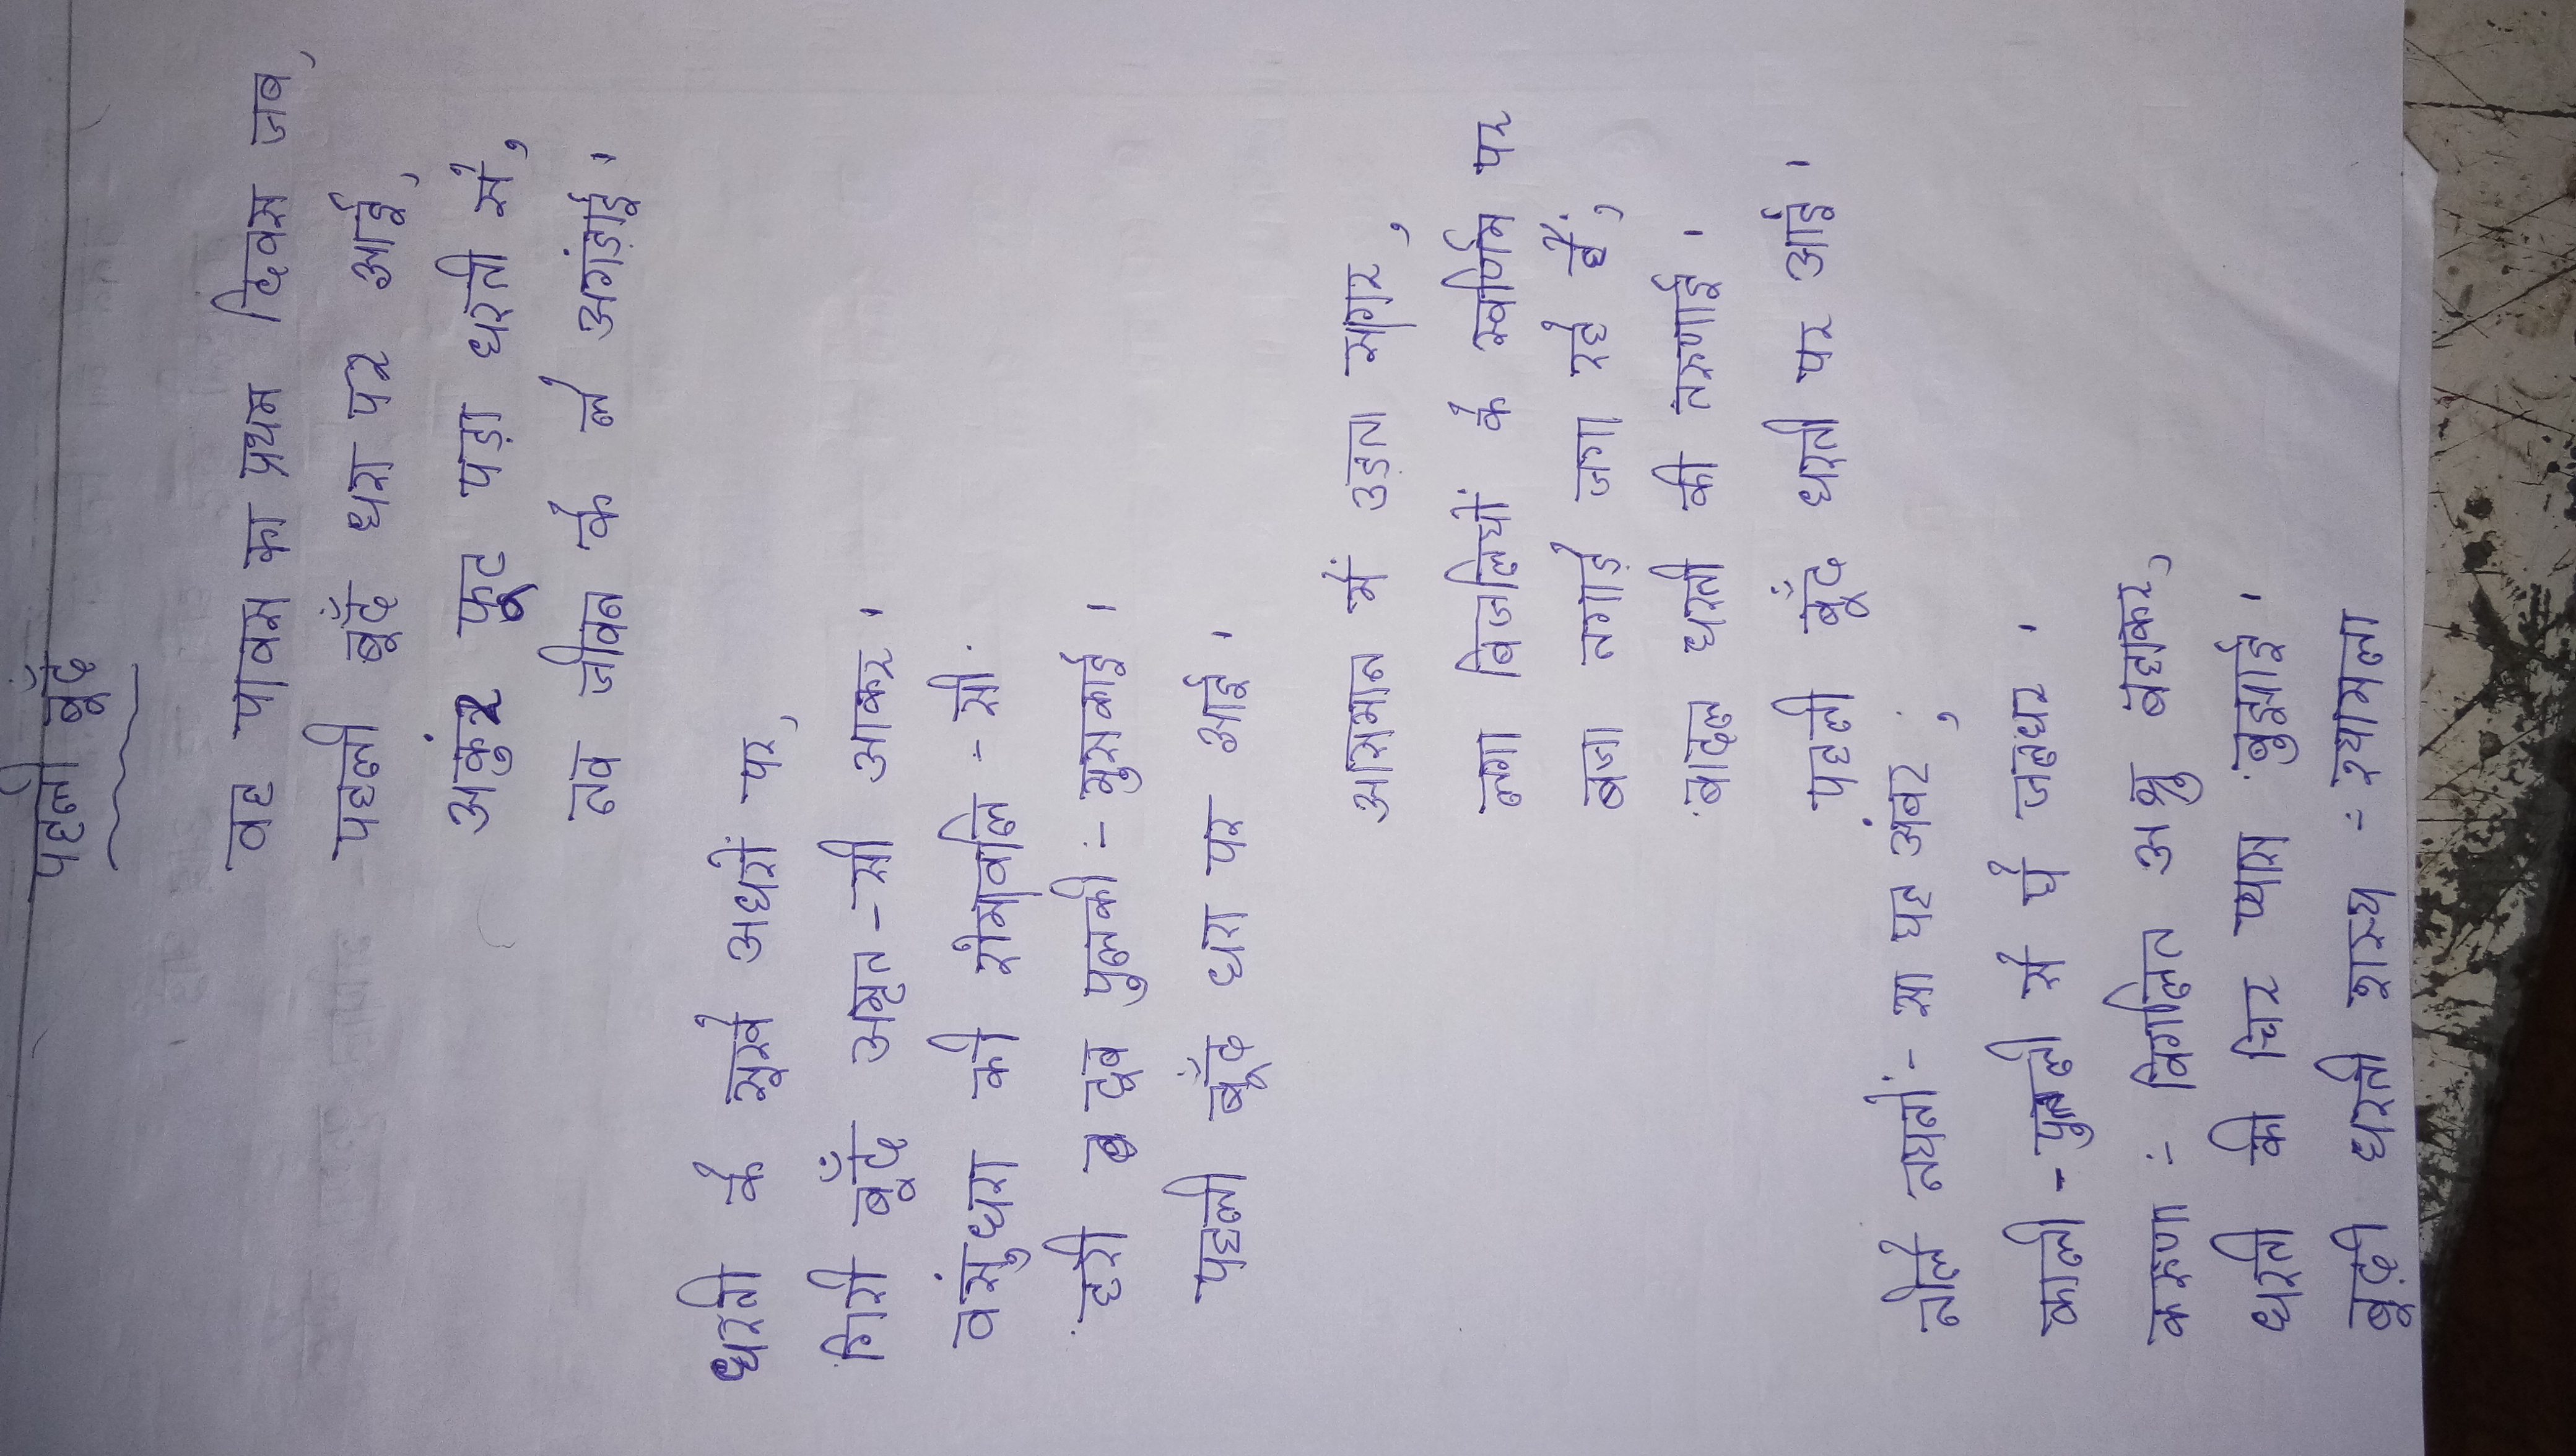 पहली बूँद
वह पावस का प्रथम दिवस जब,
पहली बुँदँ धरा पर आई,
अकुंर फूट पड़ा धरती से,
नव जीवन के ले अगंड़ाई।
धरती के सुखे अधरों पर,
गिरी बुँदँ अमृत-सी आकर।
वंसुधरा की रोमावलि-सी.
हरी दुब पुलकी-मुसकाई।
पहली बुँद धरा पर आई।
आसमान में उड़ता सागर,
लगा बिजलियों के स्वर्णिम पर
बजा नगाड़े जगा रहे हैं,
बादल धरती की तरुणाई।
पहली बुँद धरती पर आई।
नीले नयनों-सा यह अंबर,
काली-पुतली से ये जलधर।
करुणा-विगलित अश्रु बहाकर,
धरती की चिर प्यास बुझाई।
बुढ़ी धरती शस्य-श्यामला